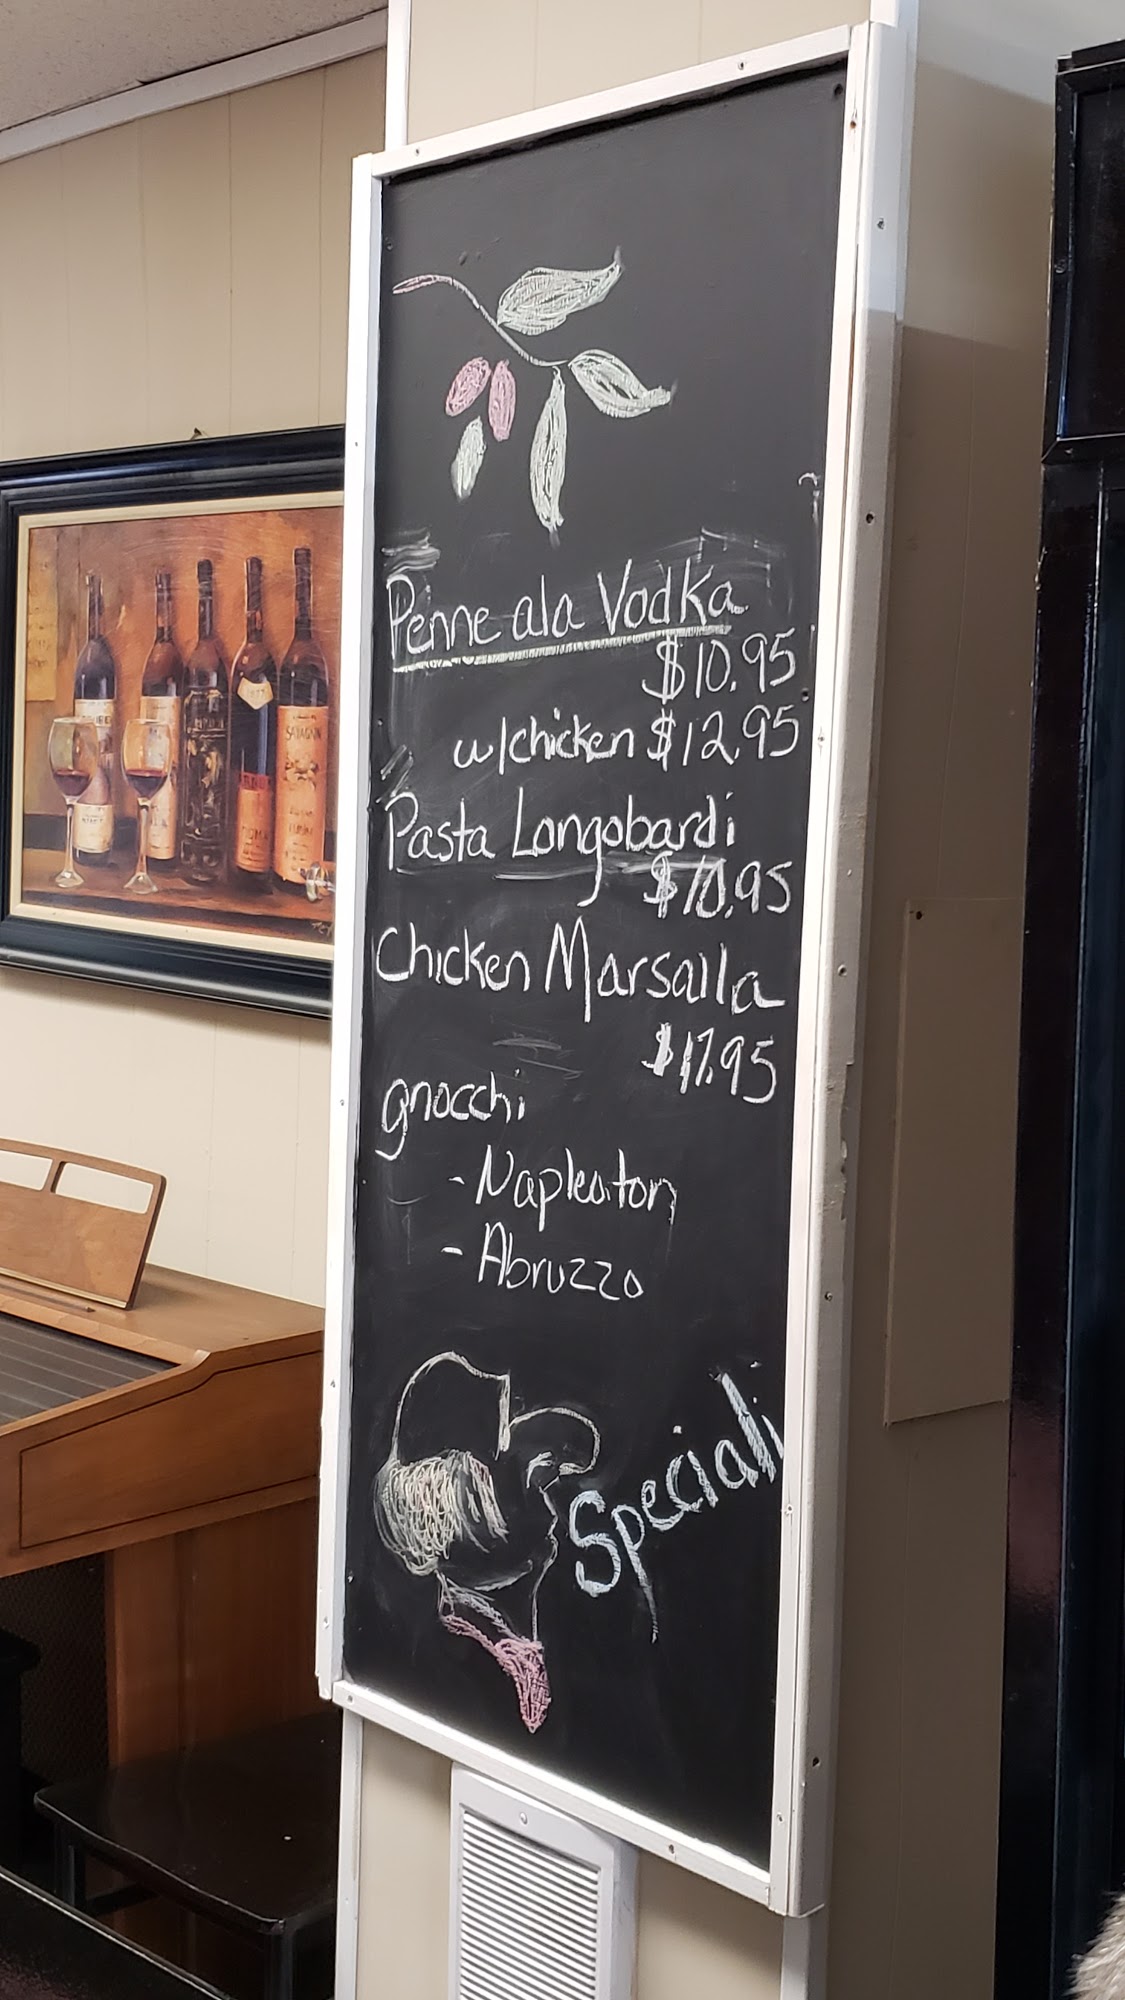 Penne ala Vodka
$10.95
w/chicken $12.95
Pasta Longobardi
$10.95
Chicken Marsalla
$17.95
gnocchi
- Napleaton
- Abruzzo
Speciali